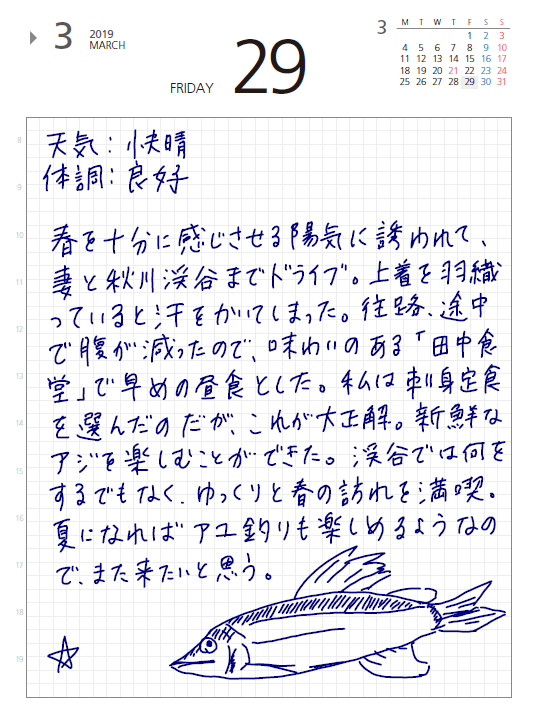 3 2019
MARCH
FRIDAY 29
3
M T W T F S S
1 2 3
4 5 6 7 8 9 10
11 12 13 14 15 16 17
18 19 20 21 22 23 24
25 26 27 28 29 30 31
8
9
10
11
12
13
14
15
16
17
18
19
天気：快晴
体調：良好
春を十分に感じさせる陽気に誘われて、
妻と秋川渓谷までドライブ。上着を羽織
っていると汗をかいてしまった。往路、途中
で腹が減ったので、味わいのある「田中食
堂」で早めの昼食とした。私は刺身定食
を選んだのだが、これが大正解。新鮮な
アジを楽しむことができた。渓谷では何を
するでもなく、ゆっくりと春の訪れを満喫。
夏になればアユ釣りも楽しめるようなの
で、また来たいと思う。